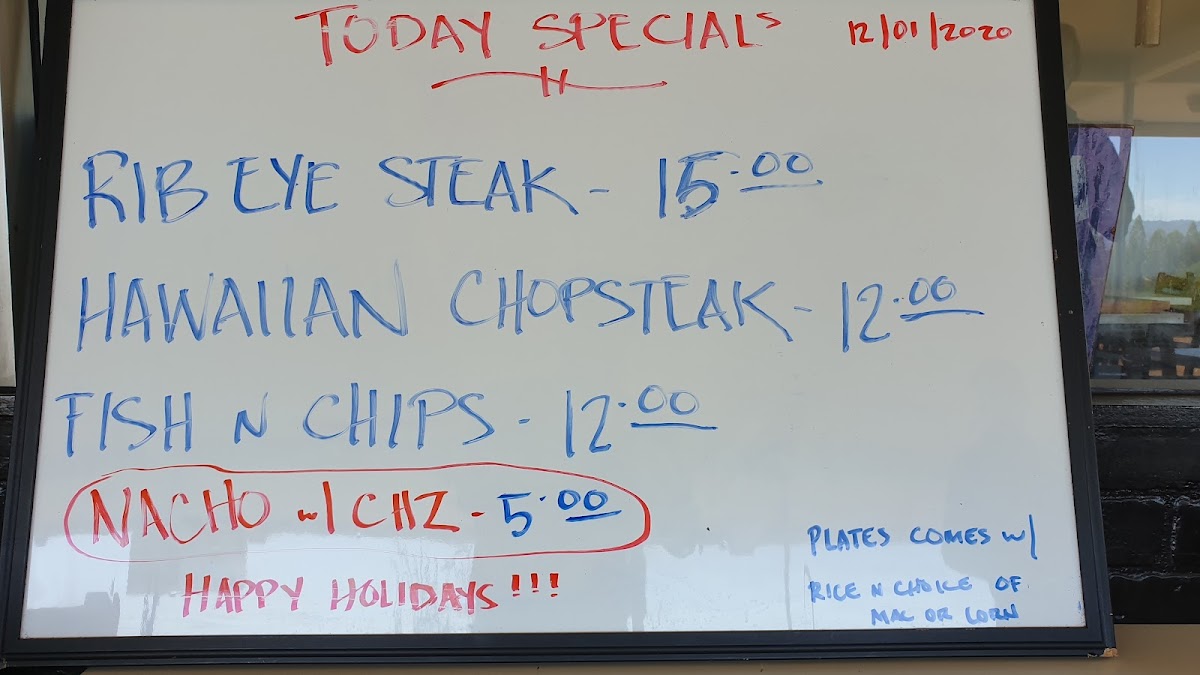 TODAY SPECIALS 12/01/2020
RIB EYE STEAK - 15.00
HAWAIIAN CHOPSTEAK - 12.00
FISH N CHIPS - 12.00
NACHO w/ CHZ - 5.00
HAPPY HOLIDAYS!!!
PLATES COMES w/
RICE N CHOICE OF
MAC OR CORN